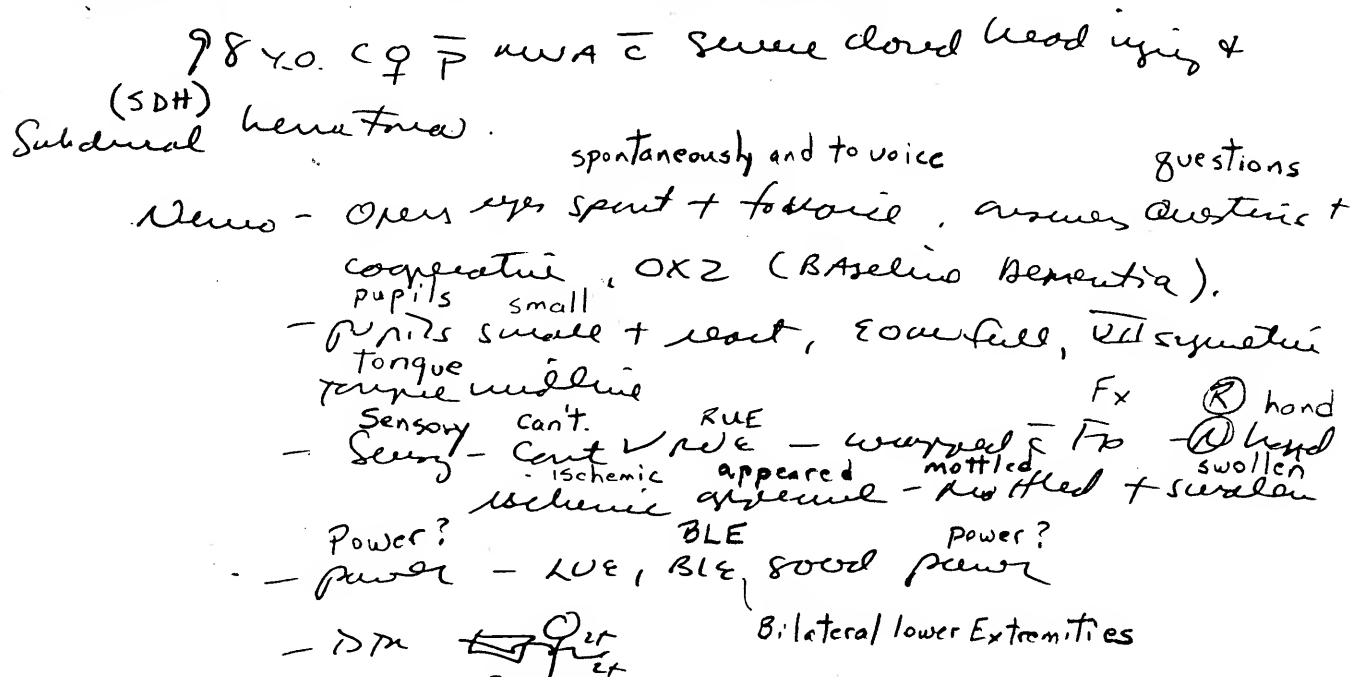 98 Y.O. C♀ p̄ MVA c̄ severe closed head injury &
(SDH)
Subdural hematoma.
spontaneously and to voice questions
Neuro - Opens eyes spont + to voice, answers Questions +
cooperative, OX2 (BAseline Dementia).
pupils small
- pupils small + react, EOM full, VII symetric
Tongue
Tongue midline
Fx Ⓡ hand
Sensory can't. RUE
- Sensory - Can't ✓ RUE - wrapped c̄ Fx - Ⓡ hand
ischemic appeared mottled swollen
ischemic appearance - mottled + swollen
Power? BLE power?
- power - LUE, BLE, good power
Bilateral lower Extremities
- DTR 2+
2+
2+